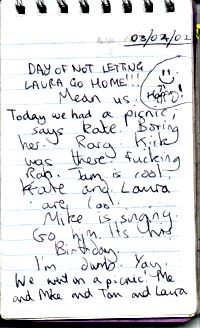 03/04/02
DAY OF NOT LETTING
LAURA GO HOME!!!
Mean us.
Happy!
Today we had a picnic,
says Kate. Boring
her. Kirk
was there fucking
Rah. is cool.
Kate and Laura
are cool.
Mike is singing.
Go him. Its his
Birthday.
I'm dumb. Yay.
We went on a picnic! Me
and Mike and Tom and Laura